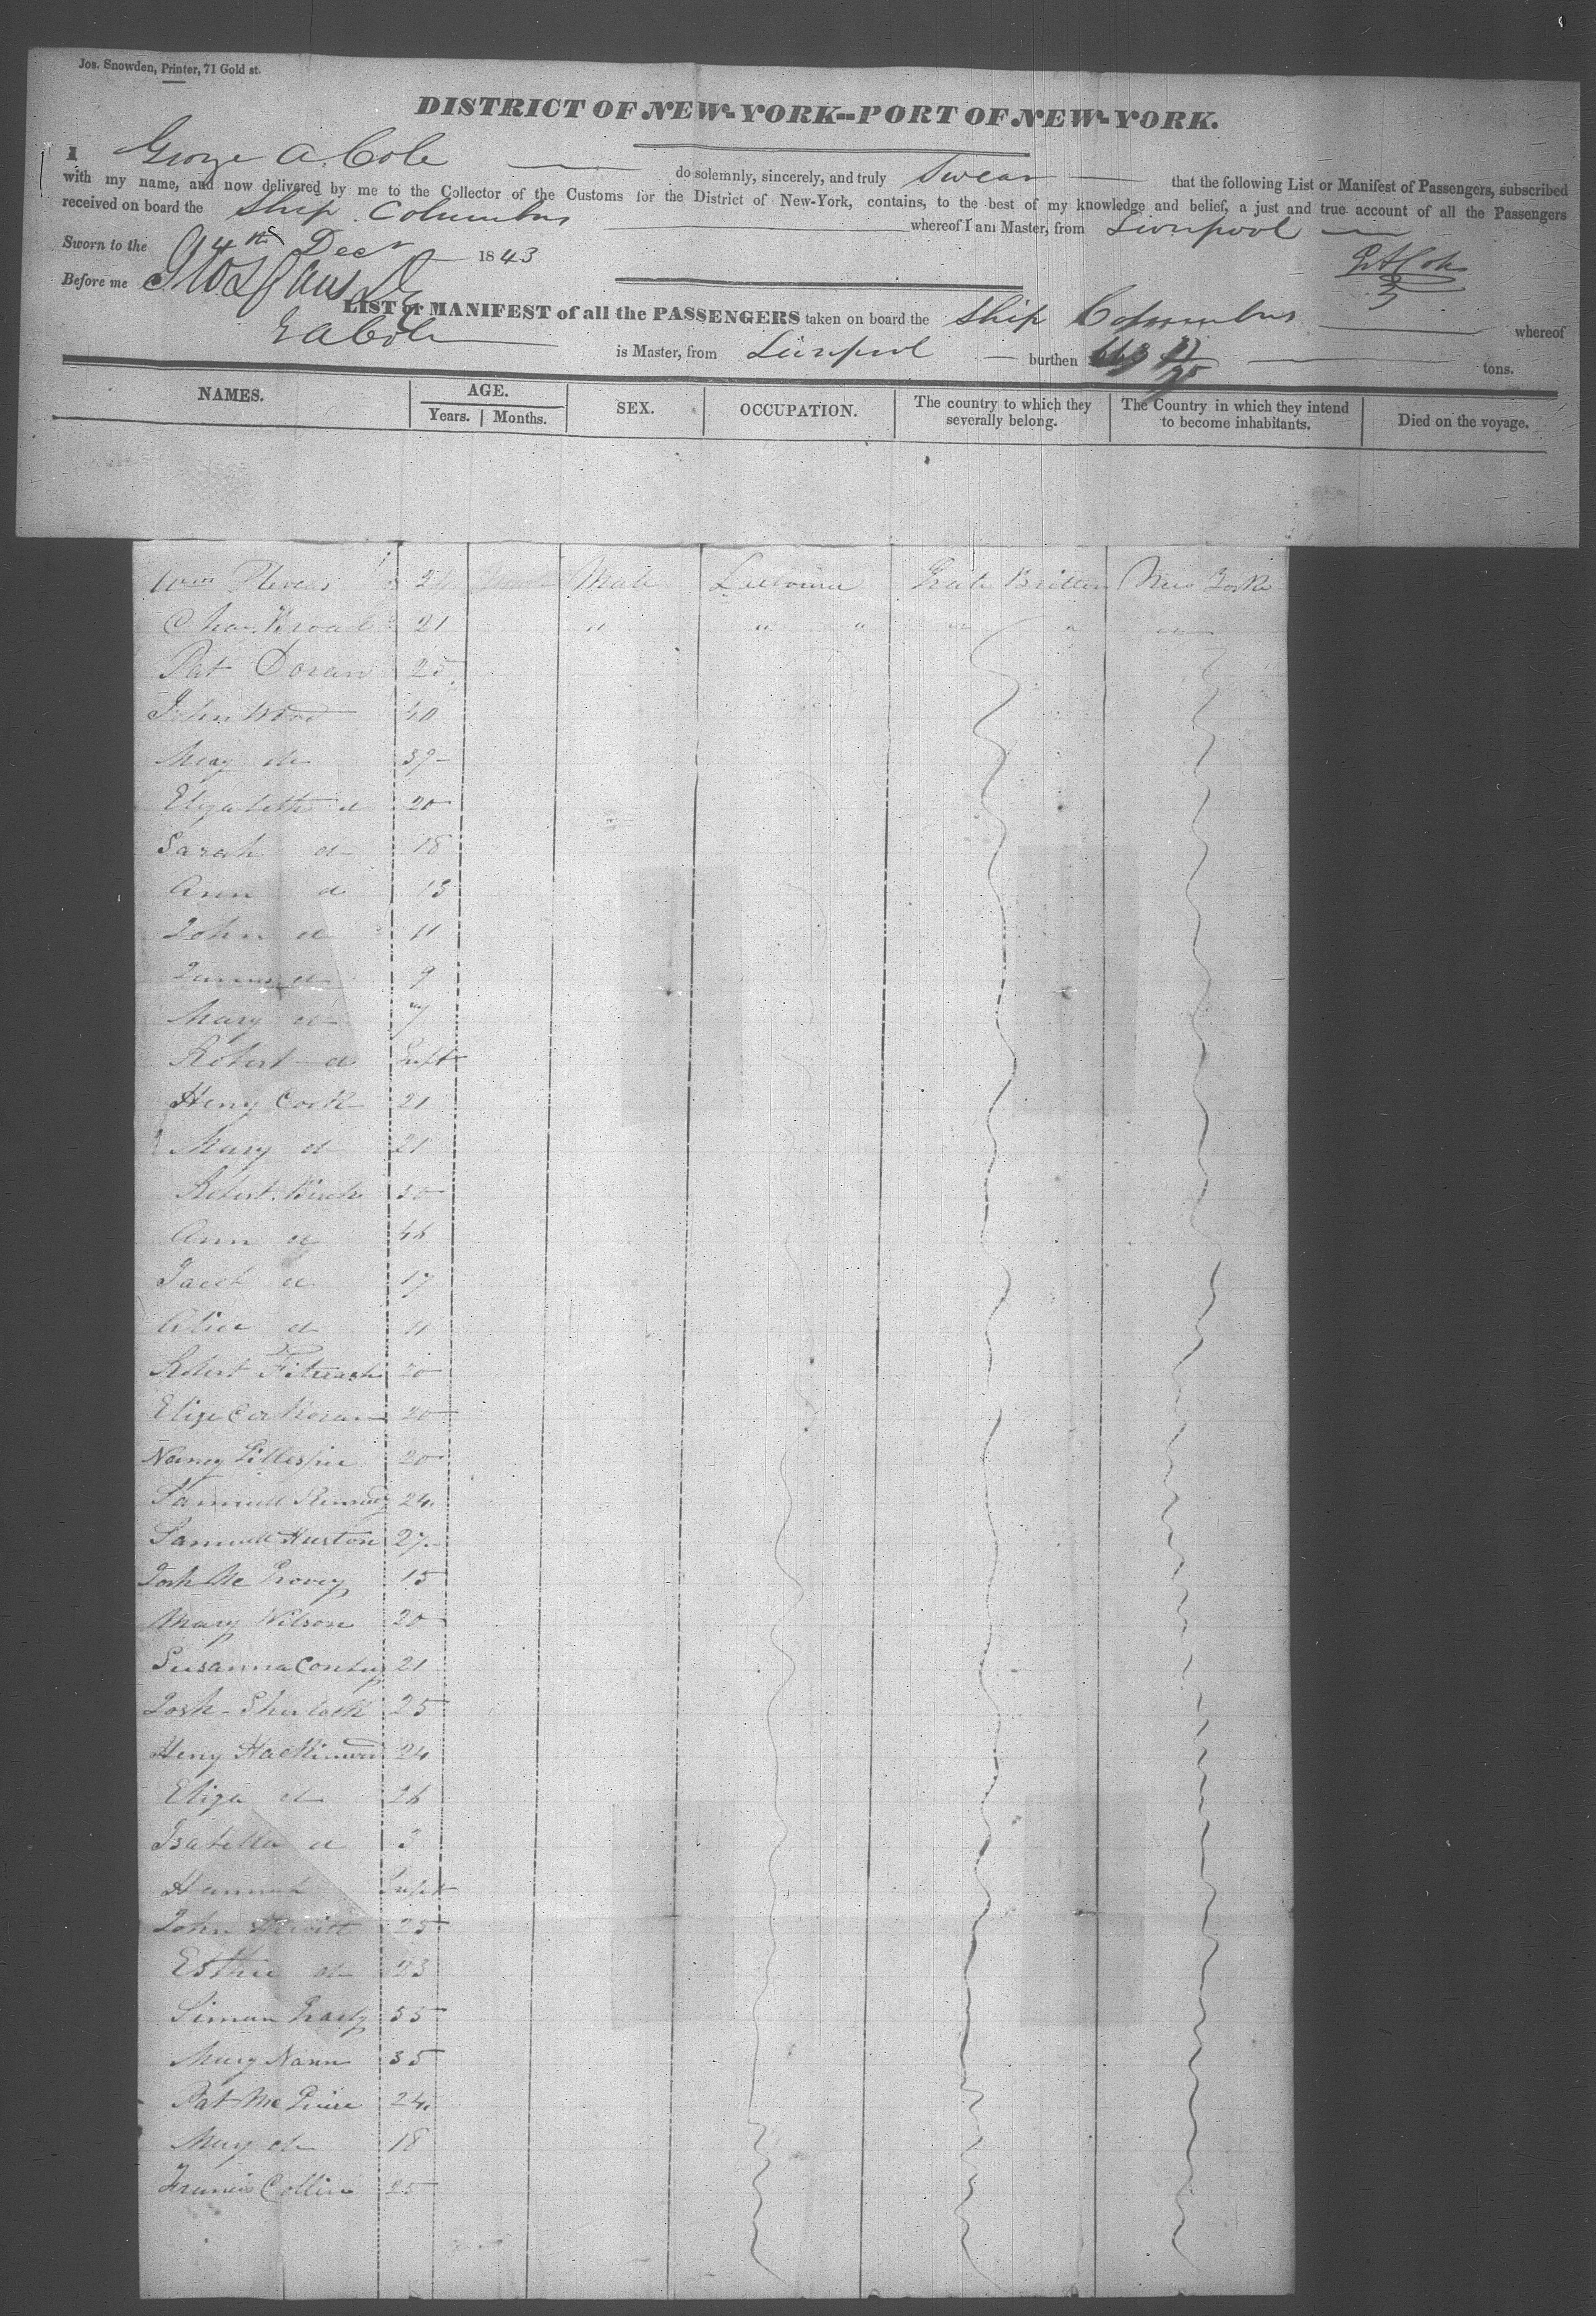 Jos. Snowden, Printer, 71 Gold st.
DISTRICT OF NEW-YORK--PORT OF NEW-YORK.
I George A. Cole do solemnly, sincerely, and truly Swear that the following List or Manifest of Passengers, subscribed
with my name, and now delivered by me to the Collector of the Customs for the District of New-York, contains, to the best of my knowledge and belief, a just and true account of all the Passengers
received on board the Ship Columbus whereof I am Master, from Liverpool
Sworn to the 4th Decr 1843
G A Cole
Before me
LIST or MANIFEST of all the PASSENGERS taken on board the Ship Columbus whereof
G A Cole is Master, from Liverpool burthen tons.
NAMES. AGE. Years. Months. SEX. OCCUPATION. The country to which they severally belong. The Country in which they intend to become inhabitants. Died on the voyage.
Wm 24 Male Great Britten New York
Chas 21 " " " " "
Pat Doran 25
John Wood 40
Mary do 39
Elizabeth d 20
Sarah d 18
Ann d 13
John d 11
James d 9
Mary d 7
Robert d Inft
Henry Cook 21
Mary d 21
Robert Birch 50
Ann d 46
Jacob d 17
Alice d 11
Robert 20
Eliza Corkoran 20
Nancy Gillespie 20
Samuell 24
Samuell Huston 27
Josh Mc 15
Mary Wilson 20
Susanna 21
Josh Shurlock 25
Henry 24
Eliza d 26
Isabella d 3
Hannah Inft
John Hewitt 25
Esther do 23
Simon Grady 55
Mary Nann 35
Pat McGuire 24
Mary do 18
Francis Collin 25